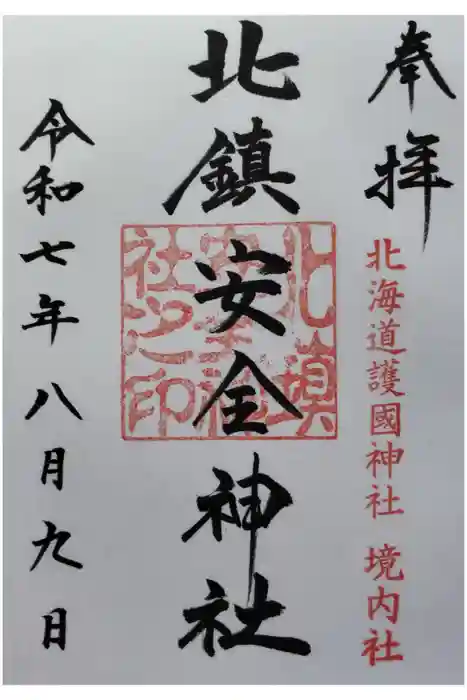 奉拝
北海道護國神社 境内社
北鎮安全神社
北鎮安全神社之印
令和七年八月九日